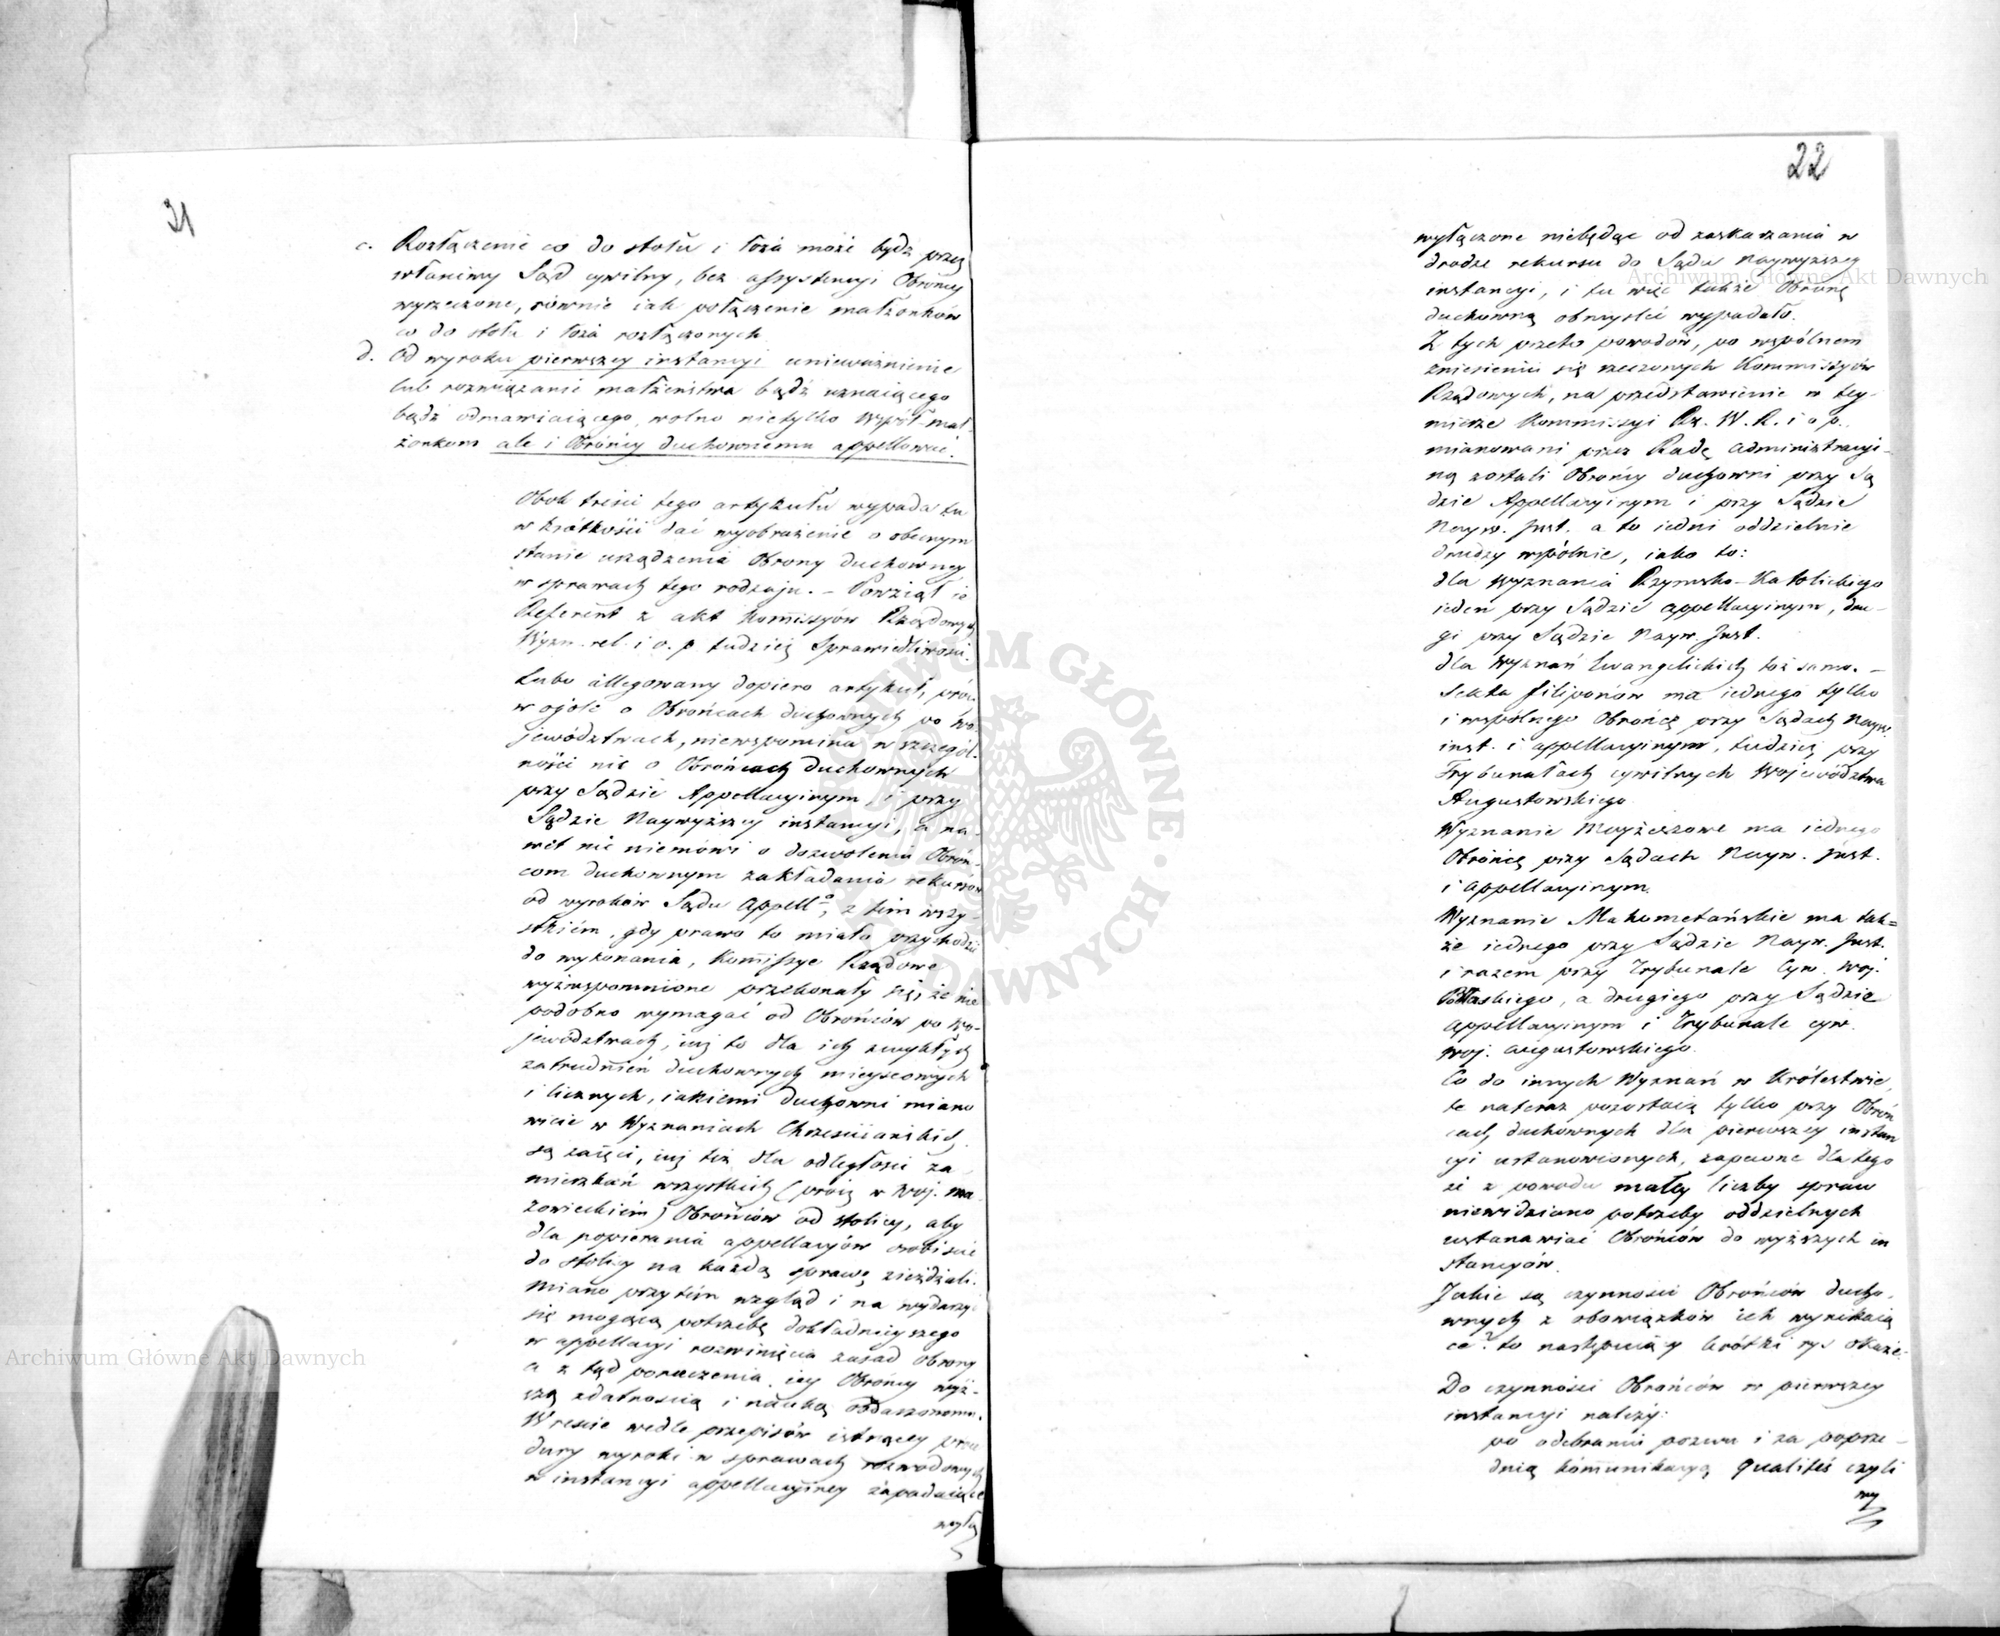 21
c. Rozłączenie co do stołu i łoża może bydź przez
właściwy Sąd cywilny, bez assystencyi Obrońcy
wyrzeczone, równie iak połączenie małżonków
co do stołu i łoża rozłączonych
d. Od wyroku pierwszey instancyi unieważnienie
lub rozwiązanie małżeństwa bądź uznaiącego
bądź odmawiaiącego, wolno nietylko Współ-mał-
żonkom ale i Obrońcy duchownemu appellować.
Obok treści tego artykułu wypada tu
w krótkości dać wyobrażenie o obecnym
stanie urządzenia Obrony duchowney
w sprawach tego rodzaju. – Powziął ie
Referent z akt Kommissyów Rządowych
Wyzn. rel. i o. p. tudzież Sprawiedliwości.
Lubo allegowany dopiero artykuł, prócz
w ogóle o Obrońcach duchownych po Wo-
jewództwach, niewspomina w szczegól-
ności nic o Obrońcach duchownych
przy Sądzie Appellacyinym, i przy
Sądzie Naywyższey instancyi, a na-
wet nic niemówi o dozwoleniu Obroń-
com duchownym zakładania rekursów
od wyroków Sądu Appello, z tem wszy-
stkiém, gdy prawo to miało przychodzić
do wykonania, Kommissye Rządowe
wyżwspomnione przekonały się, że nie
podobno wymagać od Obrońców po Wo-
jewództwach, iuż to dla ich zwykłych
zatrudnień duchownych mieyscowych
i licznych, iakiemi duchowni miano
wicie w Wyznaniach Chrześciiańskich
są zaięci, iuż też dla odległości za-
mieszkań wszystkich (prócz w Woj. Ma-
zowieckiém) Obrońców od stolicy, aby
dla popierania appellacyów osobiście
do stolicy na każdą sprawę zieżdżali.
Miano przytém wzgląd i na wydarzyć
się mogącą potrzebę dokładnieyszego
w appellacyi rozwinięcia zasad obrony
a z tąd poruczenia iey Obrońcy wyż-
szą zdatnością i nauką obdarzonemu.
Wreście wedle przepisów istnącey proce
dury wyroki w sprawach rozwodowych
w instancyi appellacyiney zapadaiące
wyłą
22
wyłączone niebędąc od zaskarzania w
drodze rekursu do Sądu Naywyższey
instancyi, i tu więc także Obronę
duchowną obmyślić wypadało.
Z tych przeto powodów, po wspólnem
zniesieniu się rzeczonych Kommissyów
Rządowych, na przedstawienie w tey-
mierze Kommissyi Rz. W. R. i o p.
mianowani przez Radę Administracyi-
ną zostali Obrońcy duchowni przy Są
dzie Appellacyinym i przy Sądzie
Nayw. Inst. a to iedni oddzielnie
drudzy wspólnie, iako to:
dla Wyznania Rzymsko-Katolickiego
ieden przy Sądzie appellacyinym, dru-
gi przy Sądzie Nayw. Inst.
dla Wyznań Ewangelickich toż samo. –
Sekta filiponów ma iednego tylko
i wspólnego Obrońcę przy Sądach Nayw.
inst. i appellacyinym, tudzież przy
Trybunałach cywilnych Województwa
Augustowskiego
Wyznanie Moyżeszowe ma iednego
Obrońcę przy Sądach Nayw. Inst.
i appellacyinym.
Wyznanie Mahometańskie ma tak=
że iednego przy Sądzie Nayw. Inst.
i razem przy Trybunale Cyw. Woj.
Podlaskiego, a drugiego przy Sądzie
appellacyinym i Trybunale cyw.
Woj. augustowskiego.
Co do innych Wyznań w Królestwie,
te nateraz pozostaią tylko przy Obroń
cach duchownych dla pierwszey instan
cyi ustanowionych, zapewne dla tego
że z powodu małey liczby spraw
niewidziano potrzeby oddzielnych
ustanawiać Obrońców do wyższych in
stancyów.
Jakie są czynności Obrońców ducho-
wnych z obowiązków ich wynikaią
ce? to następuiący krótki rys okaże.
Do czynności Obrońców w pierwszey
instancyi należy:
po odebraniu pozwu i za poprze-
dnią kommunikacyą qualités czyli
wy